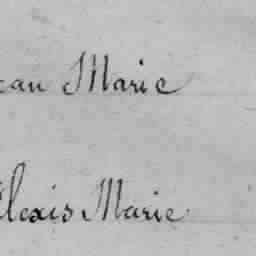 ean Marie
Alexis Marie